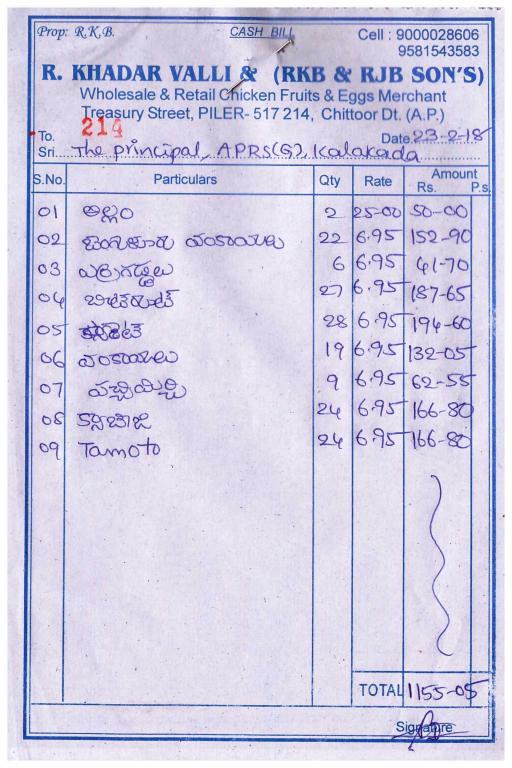 Prop: R.K.B. CASH BILL Cell : 9000028606
9581543583
R. KHADAR VALLI & (RKB & RJB SON'S)
Wholesale & Retail Chicken Fruits & Eggs Merchant
Treasury Street, PILER- 517 214, Chittoor Dt. (A.P.)
214
To. Date 23-2-18
Sri The principal, APRS(G), Kalakada
S.No. Particulars Qty Rate Amount Rs. P.s
01 అల్లం 2 25-00 50-00
02 బెంగుళూరు వంకాయలు 22 6.95 152-90
03 ఎర్రగడ్డలు 6 6.95 41-70
04 బీట్‌రూట్ 27 6.95 187-65
05 28 6.95 194-60
06 వంకాయలు 19 6.95 132-05
07 పచ్చిమిర్చి 9 6.95 62-55
08 24 6.95 166-80
09 Tamoto 24 6.95 166-80
TOTAL 1155-05
Signature